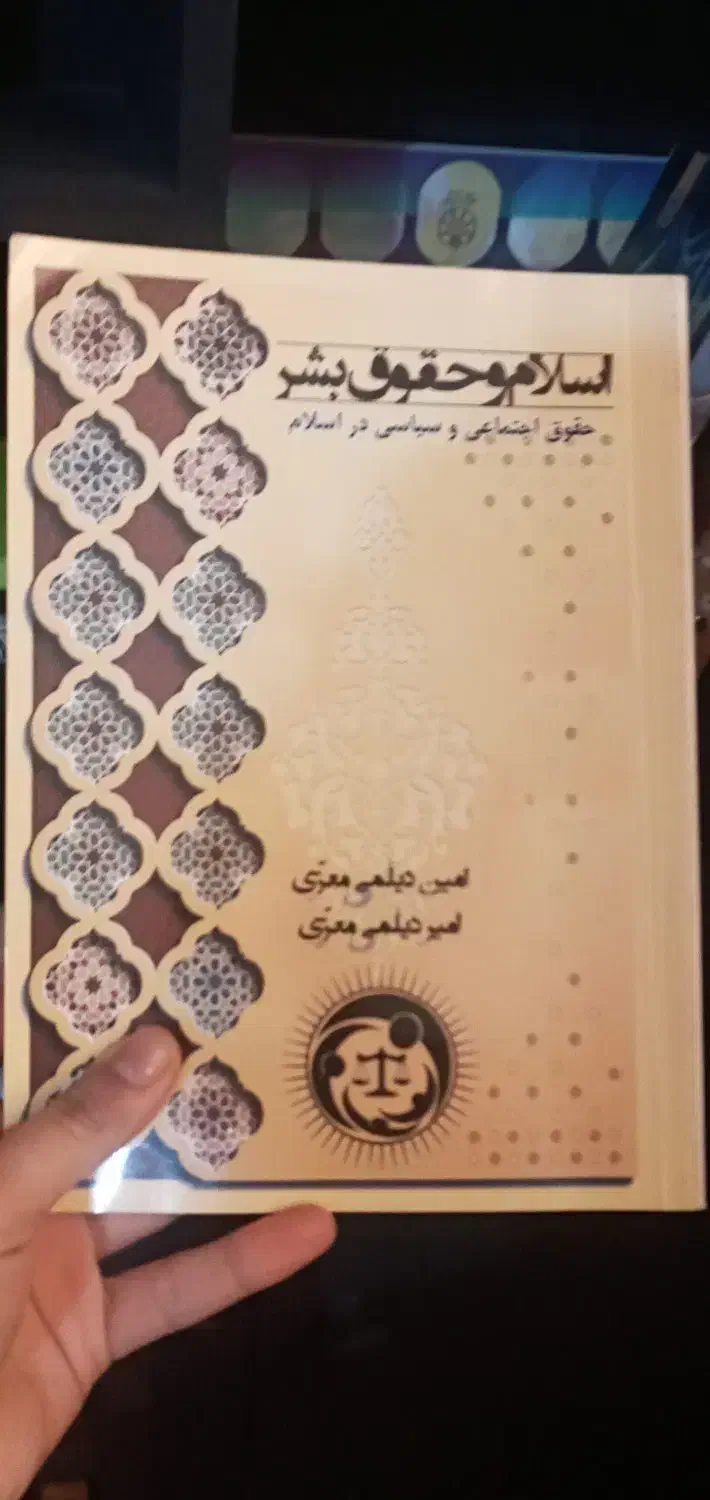 اسلام و حقوق بشر
حقوق اجتماعی و سیاسی در اسلام
امین دیلمی معزی
امیر دیلمی معزی